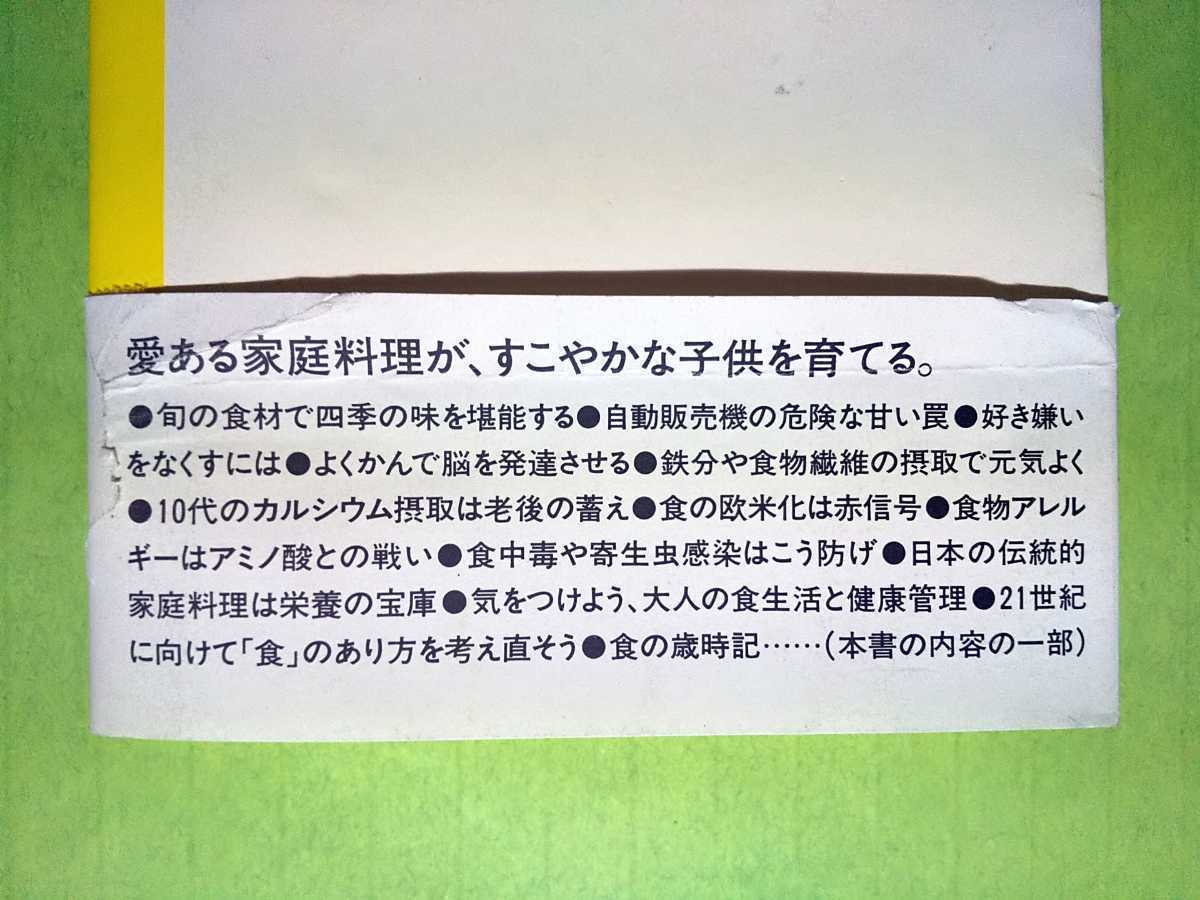 愛ある家庭料理が、すこやかな子供を育てる。
●旬の食材で四季の味を堪能する●自動販売機の危険な甘い罠●好き嫌い
をなくすには●よくかんで脳を発達させる●鉄分や食物繊維の摂取で元気よく
●10代のカルシウム摂取は老後の蓄え●食の欧米化は赤信号●食物アレル
ギーはアミノ酸との戦い●食中毒や寄生虫感染はこう防げ●日本の伝統的
家庭料理は栄養の宝庫●気をつけよう、大人の食生活と健康管理●21世紀
に向けて「食」のあり方を考え直そう●食の歳時記……(本書の内容の一部)